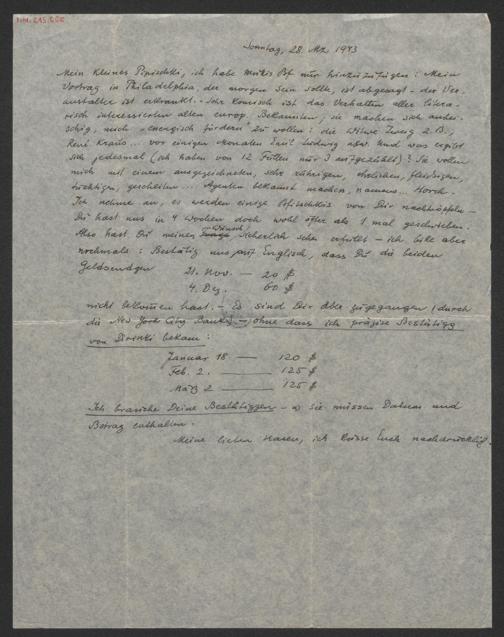 Sonntag, 28. Mz 1943
Mein kleines Pipischki, ich habe Brf nur hinzuzufügen: Mein
Vortrag in Philadelphia, der morgen sein sollte, ist abgesagt – der Ver-
anstalter ist erkrankt. – Sehr komisch ist das Verhalten aller litera-
risch interessierten alten europ. Bekannten, sie machen sich anhei-
schig, mich "energisch fördern" zu wollen: die Witwe Zweig z.B.,
René Kraus... vor einigen Monaten Emil Ludwig usw. Und was ergibt
sich jedesmal (ich haben von 12 Fällen nur 3 aufgezählt)? Sie wollen
mich mit einem ausgezeichneten, sehr rührigen, ehrlichen, fleissigen,
tüchtigen, gescheiten... Agenten bekannt machen, namens... Horch.
Ich nehme an, es werden einige von Dir nachhüpfeln –
Du hast uns in 4 Wochen doch wohl öfter als 1 mal geschrieben.
Also hast Du meinen Wunsch sicherlich schon erfüllt – ich bitte aber
nochmals: Bestätig uns auf Englisch, dass Du die beiden
Geldsendgen
21. Nov. — 20 $
4. Dez. 60 $
nicht bekommen hast. – Es sind Dir aber zugegangen (durch
die New York City Bank) – ohne dass ich präzise Bestätigg
von bekam:
Januar 18 — 120 $
Feb. 2. — 125 $
März 2 — 125 $
Ich brauche Deine Bestätiggen – u sie müssen Datum und
Betrag enthalten.
Meine lieben Hasen, ich küsse Euch nachdrückligst.